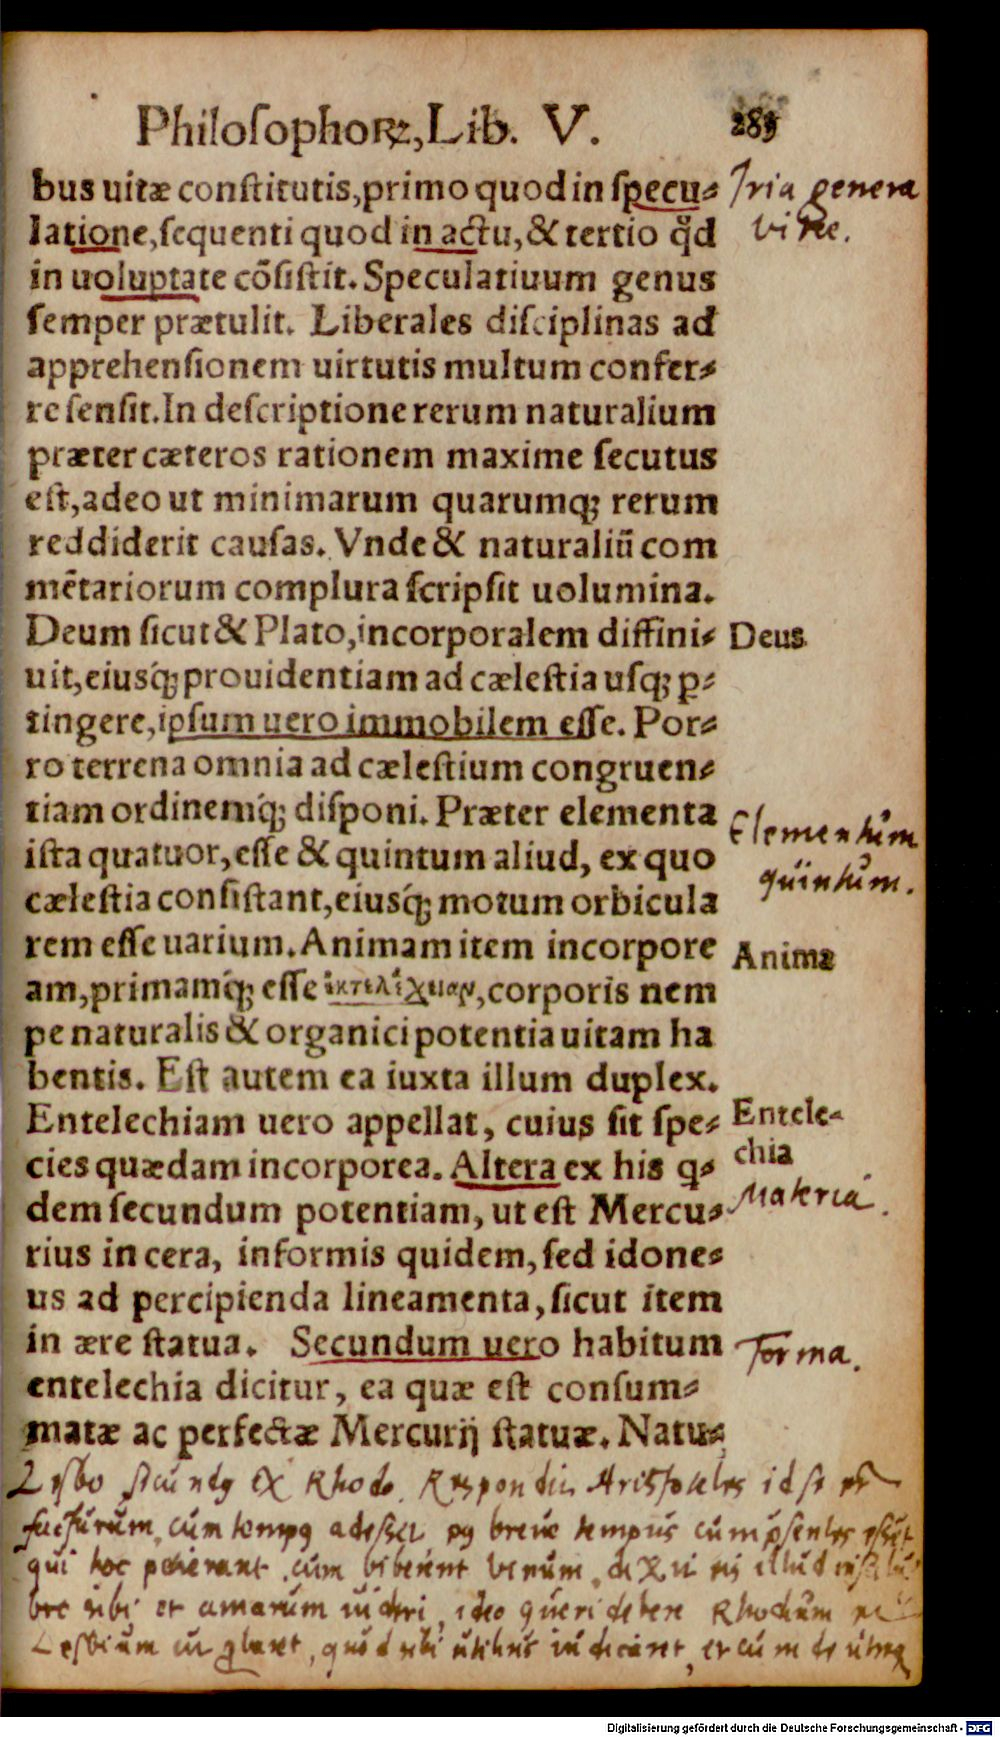 Philosophoꝝ, Lib. V. 289
bus uitæ constitutis, primo quod in specu-
latione, sequenti quod in actu, & tertio qđ
in uoluptate cõsistit. Speculatiuum genus
semper prætulit. Liberales disciplinas ad
apprehensionem uirtutis multum confer-
re sensit. In descriptione rerum naturalium
præter cæteros rationem maxime secutus
est, adeo ut minimarum quarumq; rerum
reddiderit causas. Vnde & naturaliũ com
mẽtariorum complura scripsit uolumina.
Deum sicut & Plato, incorporalem diffini-
uit, eiusq́; prouidentiam ad cælestia usq; ꝑ-
tingere, ipsum uero immobilem esse. Por-
ro terrena omnia ad cælestium congruen-
tiam ordinemq́; disponi. Præter elementa
ista quatuor, esse & quintum aliud, ex quo
cælestia consistant, eiusq́; motum orbicula
rem esse uarium. Animam item incorpore
am, primamq́; esse ἐντελέχειαν, corporis nem
pe naturalis & organici potentia uitam ha
bentis. Est autem ea iuxta illum duplex.
Entelechiam uero appellat, cuius sit spe-
cies quædam incorporea. Altera ex his q-
dem secundum potentiam, ut est Mercu-
rius in cera, informis quidem, sed idone-
us ad percipienda lineamenta, sicut item
in ære statua. Secundum uero habitum
entelechia dicitur, ea quæ est consum-
matæ ac perfectæ Mercurij statuæ. Natu-
Tria genera
vitae.
Deus
Elementum
quintum.
Anima
Entele-
chia
Materia.
Forma.
Lesbo secundq ex Rhodo. Respondit Aristoteles id se
facturum, cum tempq adesset breve tempus cum psentes essent
qui hoc petierant, cum biberent vinum, dixit eis illud
sibi et amarum videri, ideo queri debere Rhodium
Lesbium quod sibi utilius iudicaret, et cum de utroq
Digitalisierung gefördert durch die Deutsche Forschungsgemeinschaft - DFG